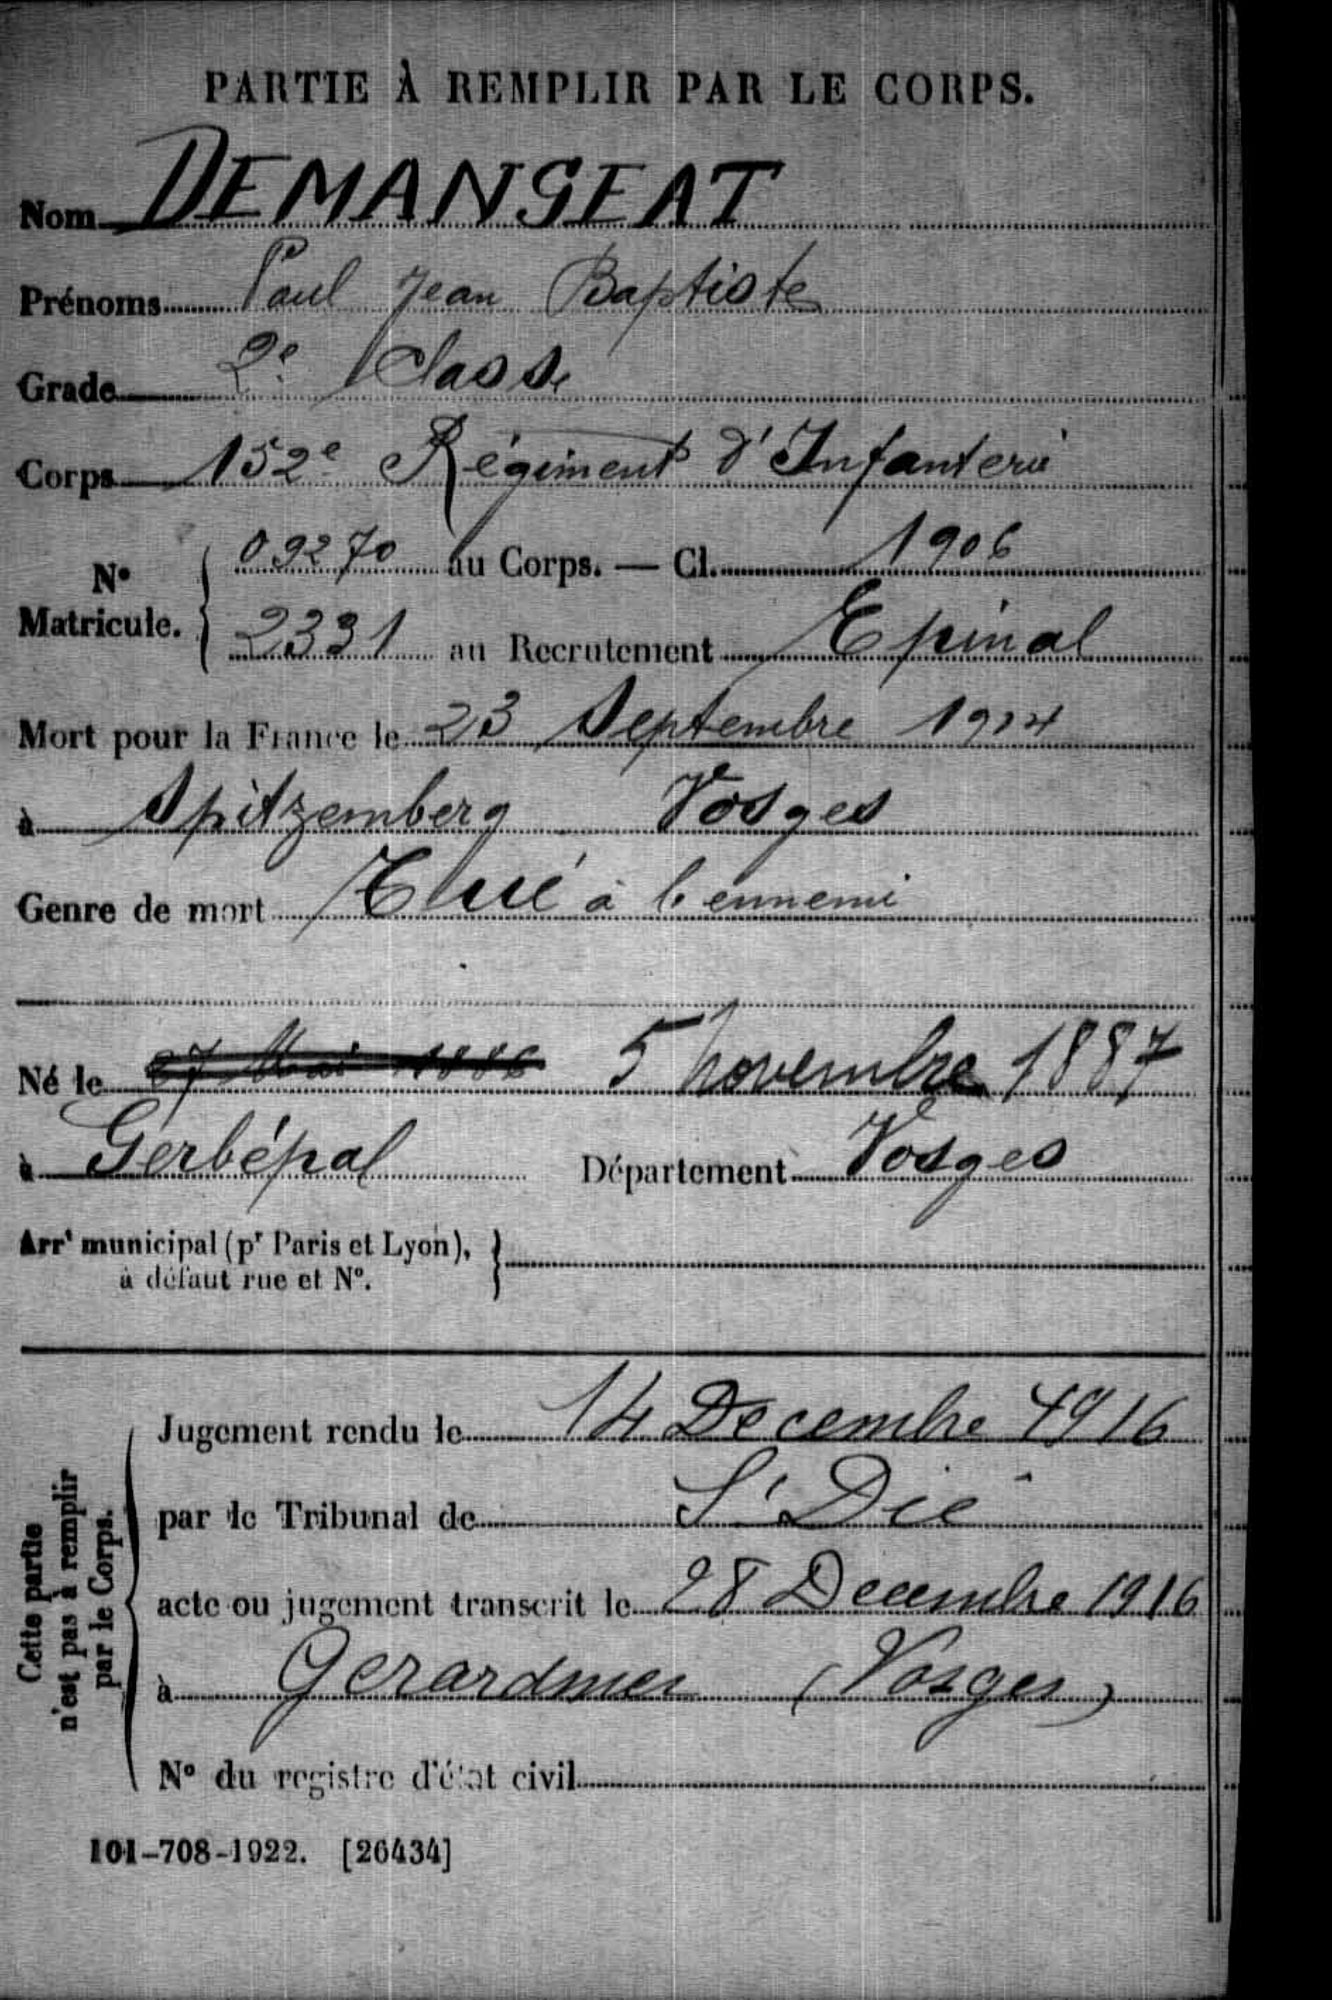 PARTIE À REMPLIR PAR LE CORPS.
Nom DEMANGEAT
Prénoms Paul Jean Baptiste
Grade 2e Classe
Corps 152e Régiment d'Infanterie
N° Matricule. { 09270 au Corps. — Cl. 1906
2331 au Recrutement Epinal
Mort pour la France le 23 Septembre 1914
à Spitzemberg Vosges
Genre de mort Tué à l'ennemi
Né le 27 Mai 1886 5 novembre 1887
à Gerbépal Département Vosges
Arrt municipal (pr Paris et Lyon),
à défaut rue et N°.
Cette partie
n'est pas à remplir
par le Corps.
Jugement rendu le 14 Decembre 1916
par le Tribunal de St Dié
acte ou jugement transcrit le 28 Decembre 1916
à Gerardmer (Vosges)
N° du registre d'état civil
101-708-1922. [26434]